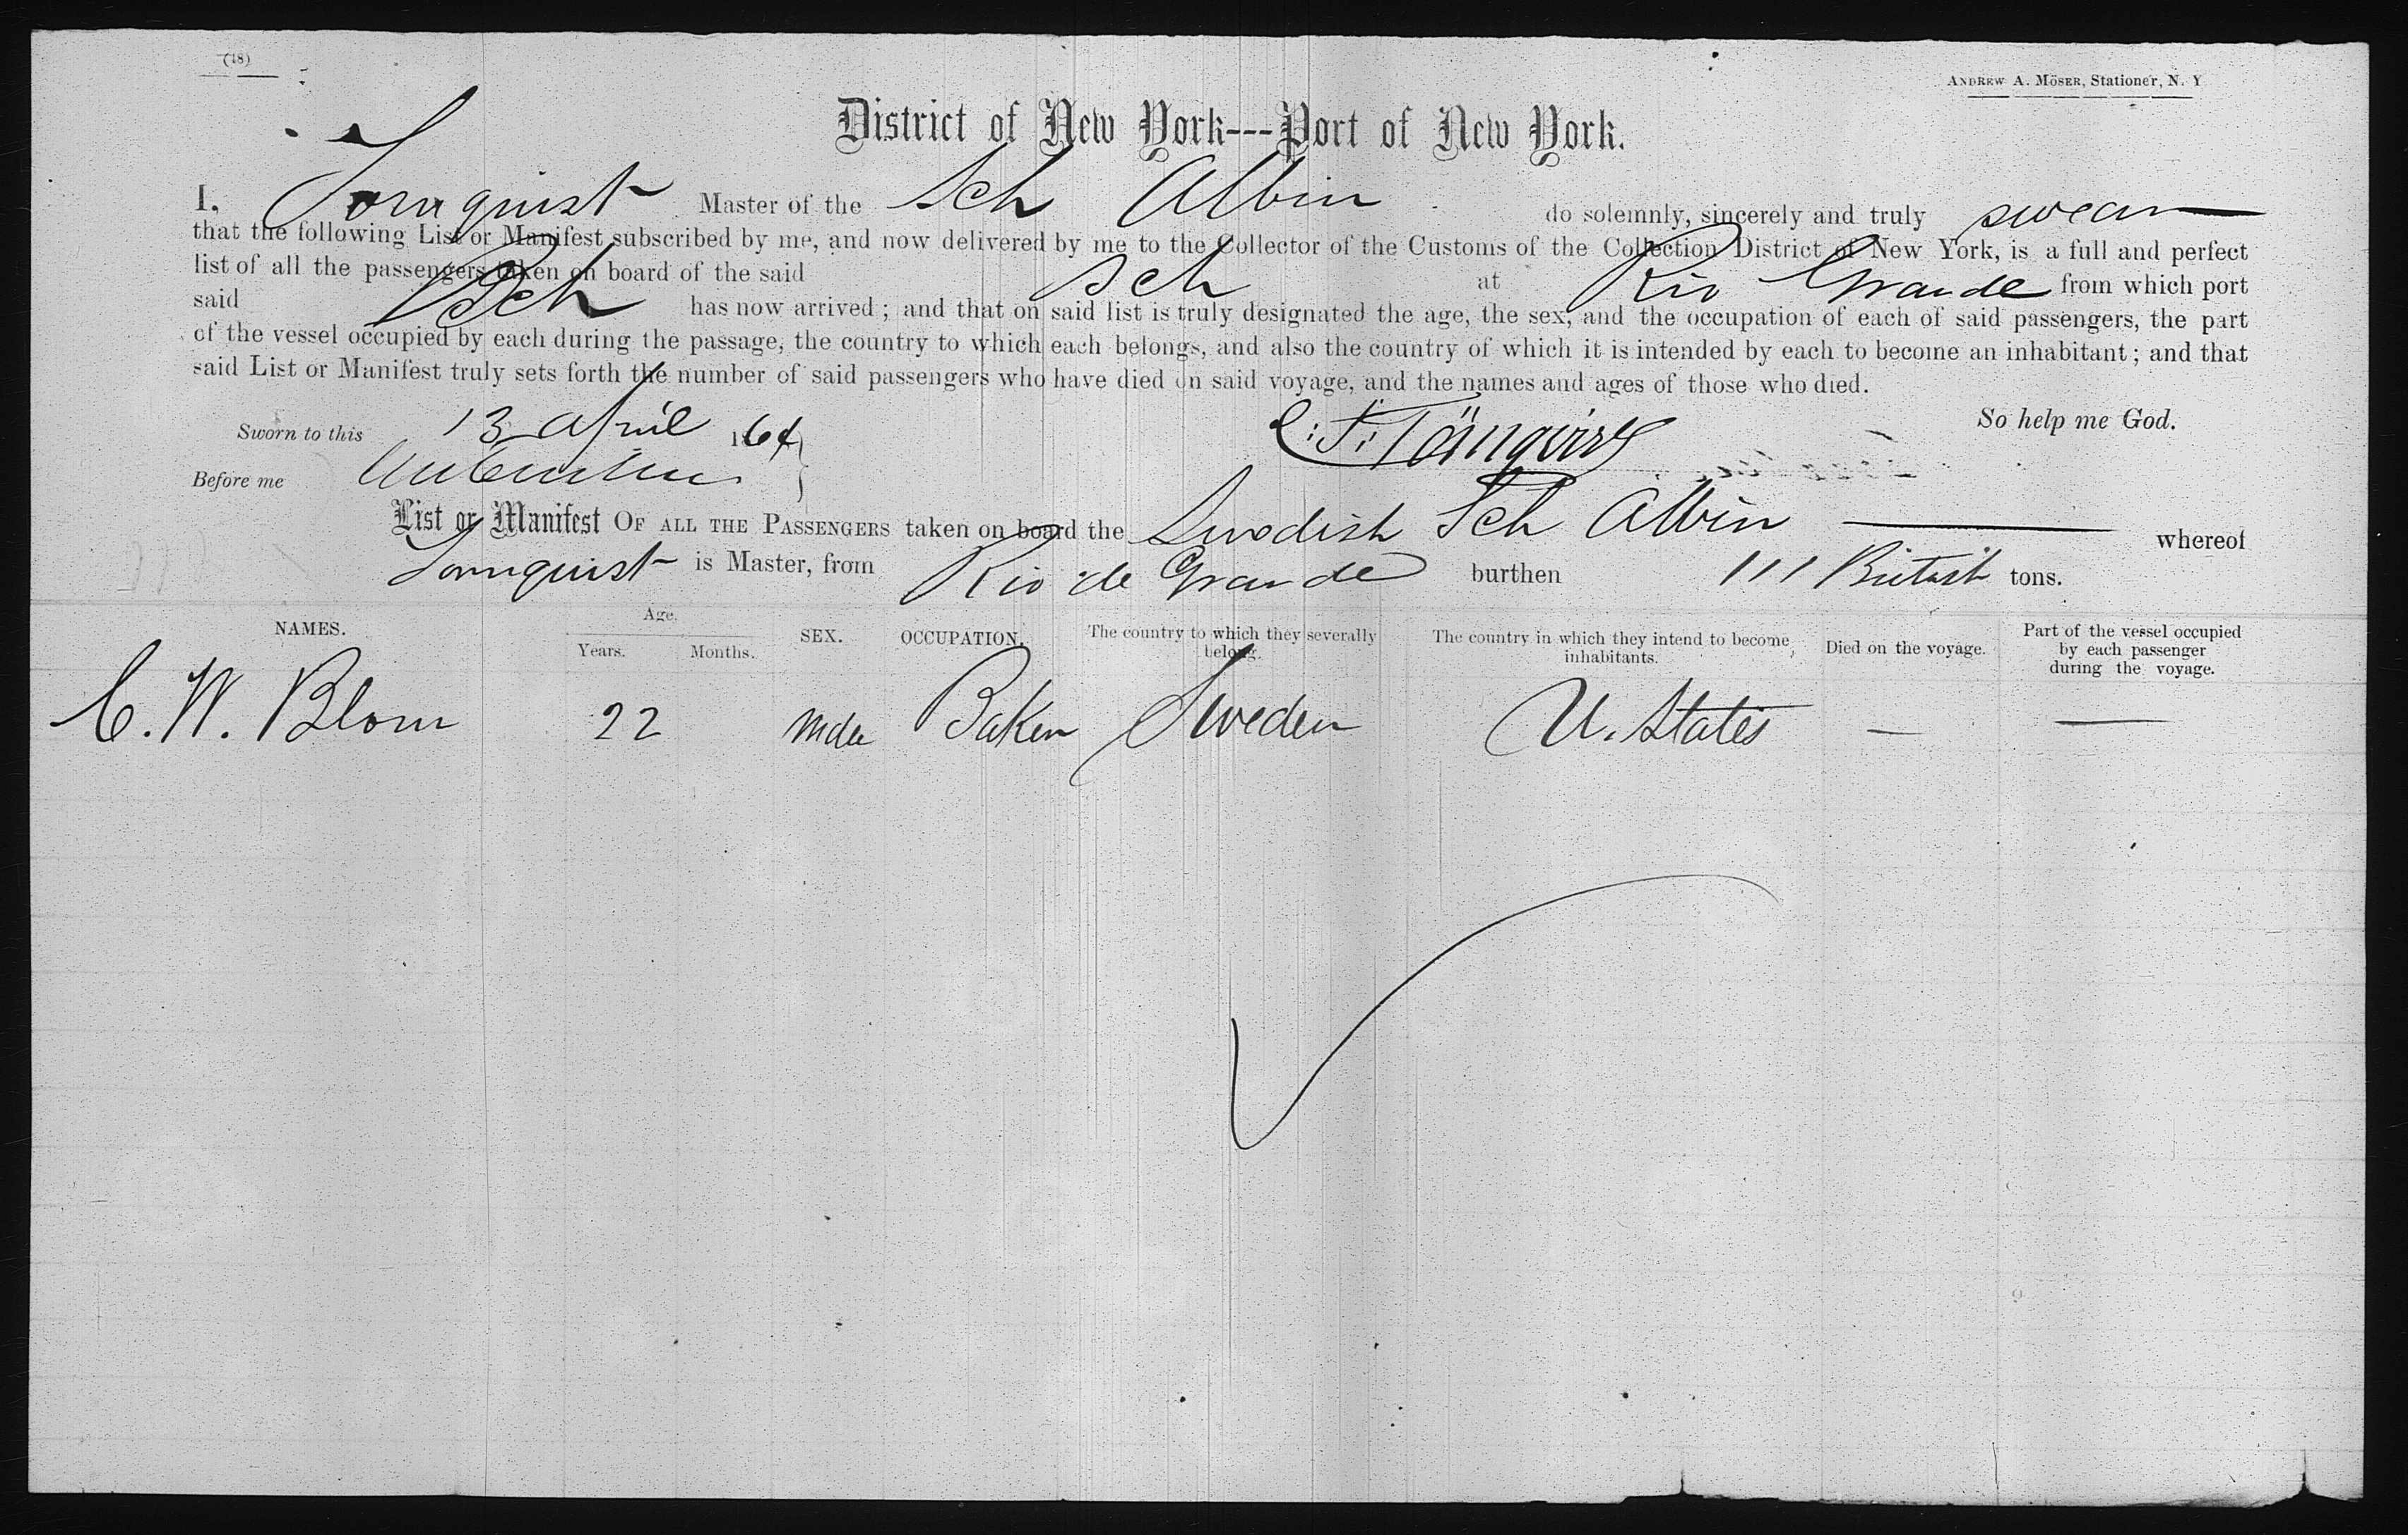 (48)
ANDREW A. MÖSER, Stationer, N. Y
District of New York---Port of New York.
I, Tornquist Master of the Sch Albin do solemnly, sincerely and truly swear
that the following List or Manifest subscribed by me, and now delivered by me to the Collector of the Customs of the Collection District of New York, is a full and perfect
list of all the passengers taken on board of the said Sch at Rio Grande from which port
said Sch has now arrived; and that on said list is truly designated the age, the sex, and the occupation of each of said passengers, the part
of the vessel occupied by each during the passage, the country to which each belongs, and also the country of which it is intended by each to become an inhabitant; and that
said List or Manifest truly sets forth the number of said passengers who have died on said voyage, and the names and ages of those who died.
So help me God.
Sworn to this 13 April 1864
Before me
List or Manifest OF ALL THE PASSENGERS taken on board the Swedish Sch Albin whereof
Tornquist is Master, from Rio de Grande burthen 111 British tons.
NAMES. Age. Years. Months. SEX. OCCUPATION. The country to which they severally belong. The country in which they intend to become inhabitants. Died on the voyage. Part of the vessel occupied by each passenger during the voyage.
C. W. Blom 22 Male Baker Sweden U. States — —